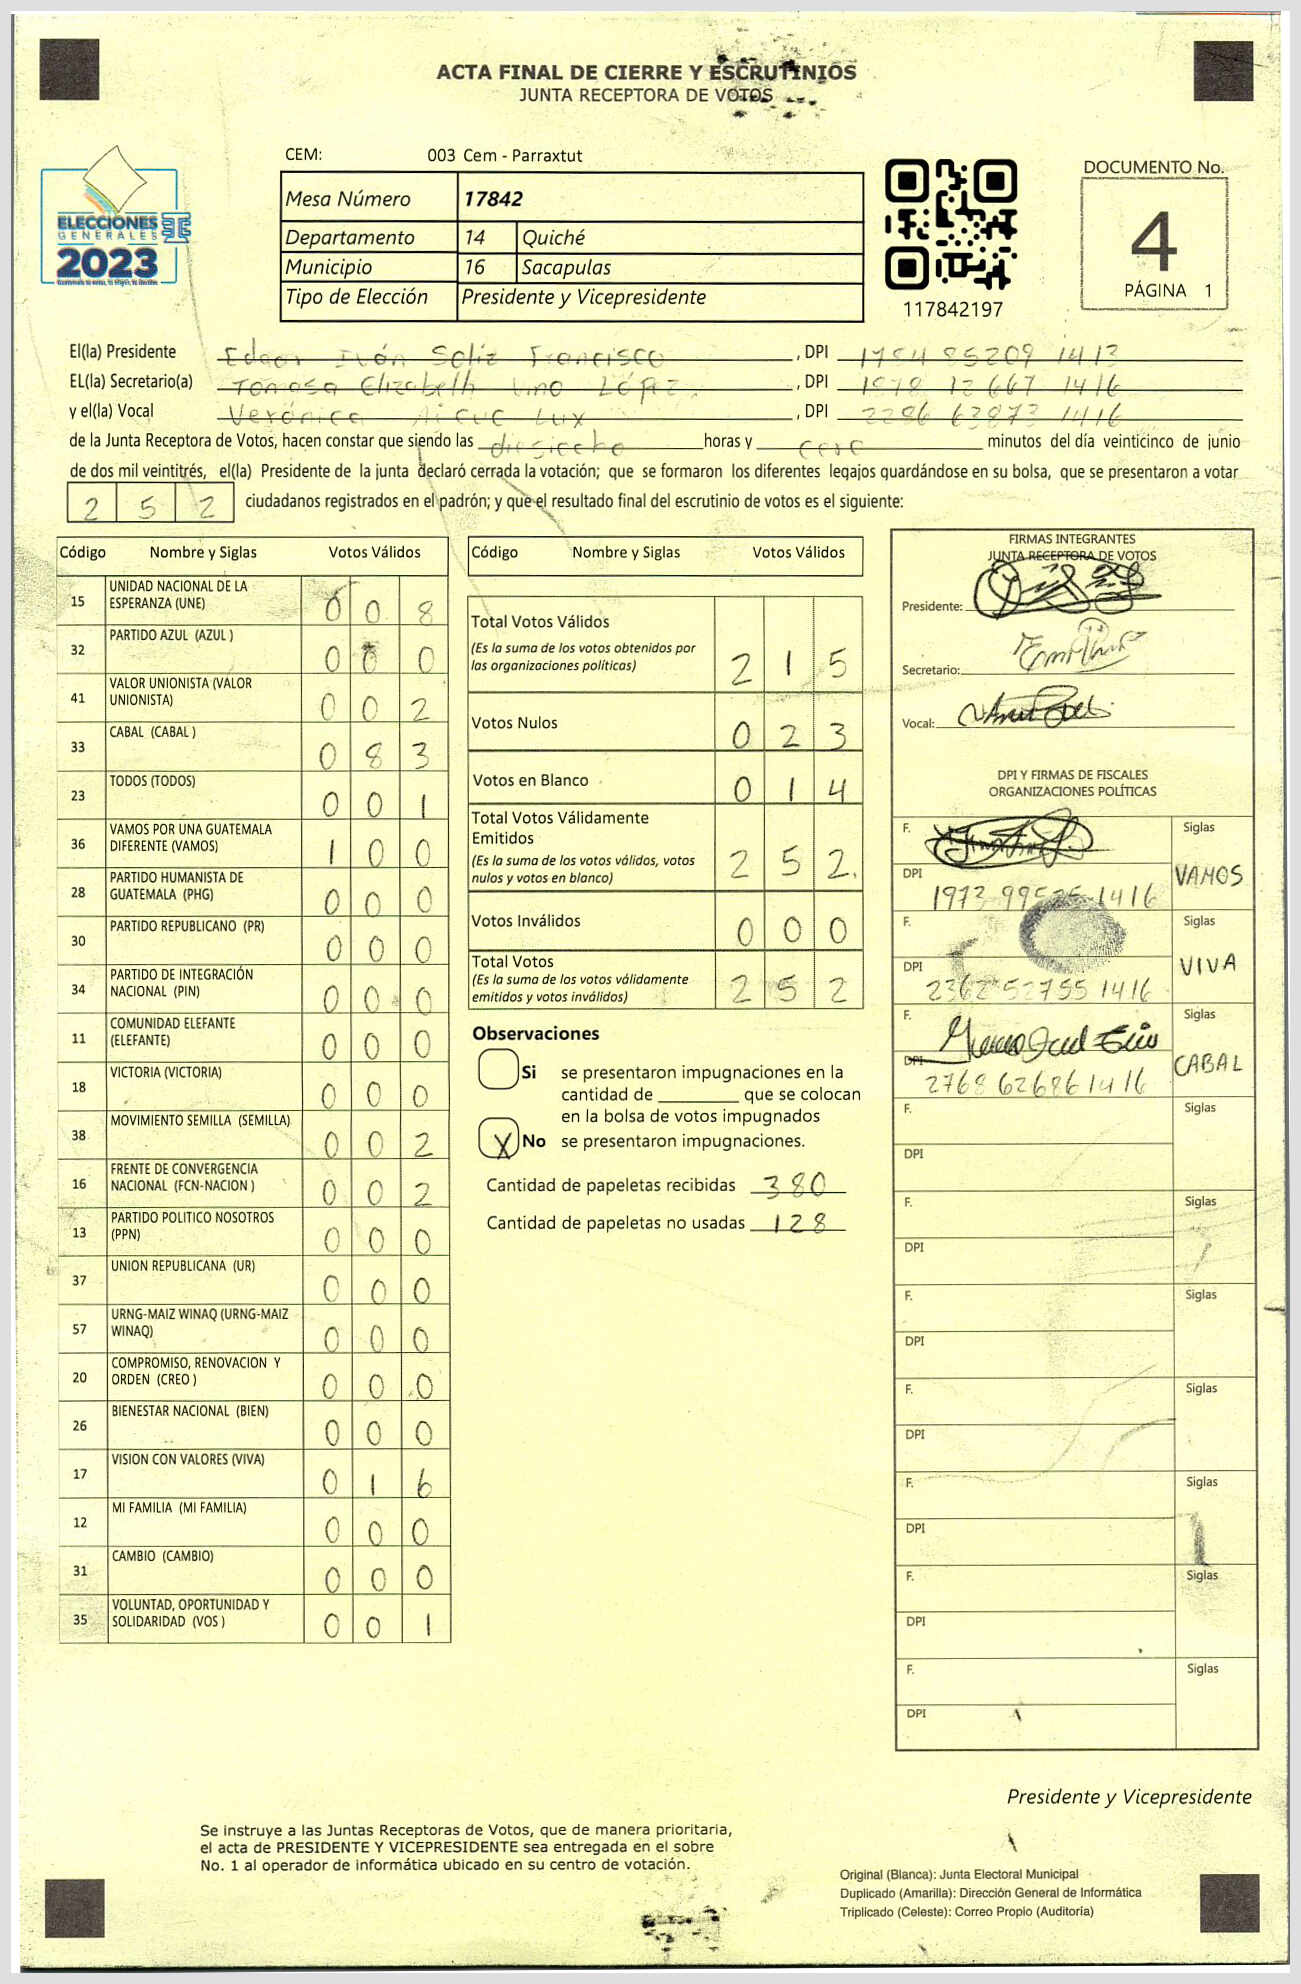 ACTA FINAL DE CIERRE Y ESCRUTINIOS
JUNTA RECEPTORA DE VOTOS
CEM: 003 Cem - Parraxtut
ELECCIONES
GENERALES
2023
Mesa Número 17842
Departamento 14 Quiché
Municipio 16 Sacapulas
Tipo de Elección Presidente y Vicepresidente
117842197
DOCUMENTO No.
4
PÁGINA 1
El(la) Presidente Edgar Iván Soliz Francisco, DPI 1784 85209 1413
EL(la) Secretario(a) Tomasa Elizabeth López, DPI 1978 12667 1416
y el(la) Vocal Verónica Lux, DPI 2286 63873 1416
de la Junta Receptora de Votos, hacen constar que siendo las horas y cero minutos del día veinticinco de junio
de dos mil veintitrés, el(la) Presidente de la junta declaró cerrada la votación; que se formaron los diferentes legajos guardándose en su bolsa, que se presentaron a votar
252 ciudadanos registrados en el padrón; y que el resultado final del escrutinio de votos es el siguiente:
Código Nombre y Siglas Votos Válidos
15 UNIDAD NACIONAL DE LA ESPERANZA (UNE) 0 0 8
32 PARTIDO AZUL (AZUL ) 0 0 0
41 VALOR UNIONISTA (VALOR UNIONISTA) 0 0 2
33 CABAL (CABAL ) 0 8 3
23 TODOS (TODOS) 0 0 1
36 VAMOS POR UNA GUATEMALA DIFERENTE (VAMOS) 1 0 0
28 PARTIDO HUMANISTA DE GUATEMALA (PHG) 0 0 0
30 PARTIDO REPUBLICANO (PR) 0 0 0
34 PARTIDO DE INTEGRACIÓN NACIONAL (PIN) 0 0 0
11 COMUNIDAD ELEFANTE (ELEFANTE) 0 0 0
18 VICTORIA (VICTORIA) 0 0 0
38 MOVIMIENTO SEMILLA (SEMILLA) 0 0 2
16 FRENTE DE CONVERGENCIA NACIONAL (FCN-NACION ) 0 0 2
13 PARTIDO POLITICO NOSOTROS (PPN) 0 0 0
37 UNION REPUBLICANA (UR) 0 0 0
57 URNG-MAIZ WINAQ (URNG-MAIZ WINAQ) 0 0 0
20 COMPROMISO, RENOVACION Y ORDEN (CREO ) 0 0 0
26 BIENESTAR NACIONAL (BIEN) 0 0 0
17 VISION CON VALORES (VIVA) 0 1 6
12 MI FAMILIA (MI FAMILIA) 0 0 0
31 CAMBIO (CAMBIO) 0 0 0
35 VOLUNTAD, OPORTUNIDAD Y SOLIDARIDAD (VOS ) 0 0 1
Código Nombre y Siglas Votos Válidos
Total Votos Válidos 2 1 5
(Es la suma de los votos obtenidos por
las organizaciones políticas)
Votos Nulos 0 2 3
Votos en Blanco 0 1 4
Total Votos Válidamente
Emitidos 2 5 2.
(Es la suma de los votos válidos, votos
nulos y votos en blanco)
Votos Inválidos 0 0 0
Total Votos 2 5 2
(Es la suma de los votos válidamente
emitidos y votos inválidos)
Observaciones
Si se presentaron impugnaciones en la
cantidad de ________ que se colocan
en la bolsa de votos impugnados
X No se presentaron impugnaciones.
Cantidad de papeletas recibidas 380
Cantidad de papeletas no usadas 128
FIRMAS INTEGRANTES
JUNTA RECEPTORA DE VOTOS
Presidente:
Secretario:
Vocal:
DPI Y FIRMAS DE FISCALES
ORGANIZACIONES POLÍTICAS
F. Siglas
DPI 1416 VAMOS
F. Siglas
DPI 2362 52755 1416 VIVA
F. Siglas
DPI 2768 62686 1416 CABAL
F. Siglas
DPI
F. Siglas
DPI
F. Siglas
DPI
F. Siglas
DPI
F. Siglas
DPI
F. Siglas
DPI
F. Siglas
DPI
Presidente y Vicepresidente
Se instruye a las Juntas Receptoras de Votos, que de manera prioritaria,
el acta de PRESIDENTE Y VICEPRESIDENTE sea entregada en el sobre
No. 1 al operador de informática ubicado en su centro de votación.
Original (Blanca): Junta Electoral Municipal
Duplicado (Amarilla): Dirección General de Informática
Triplicado (Celeste): Correo Propio (Auditoría)